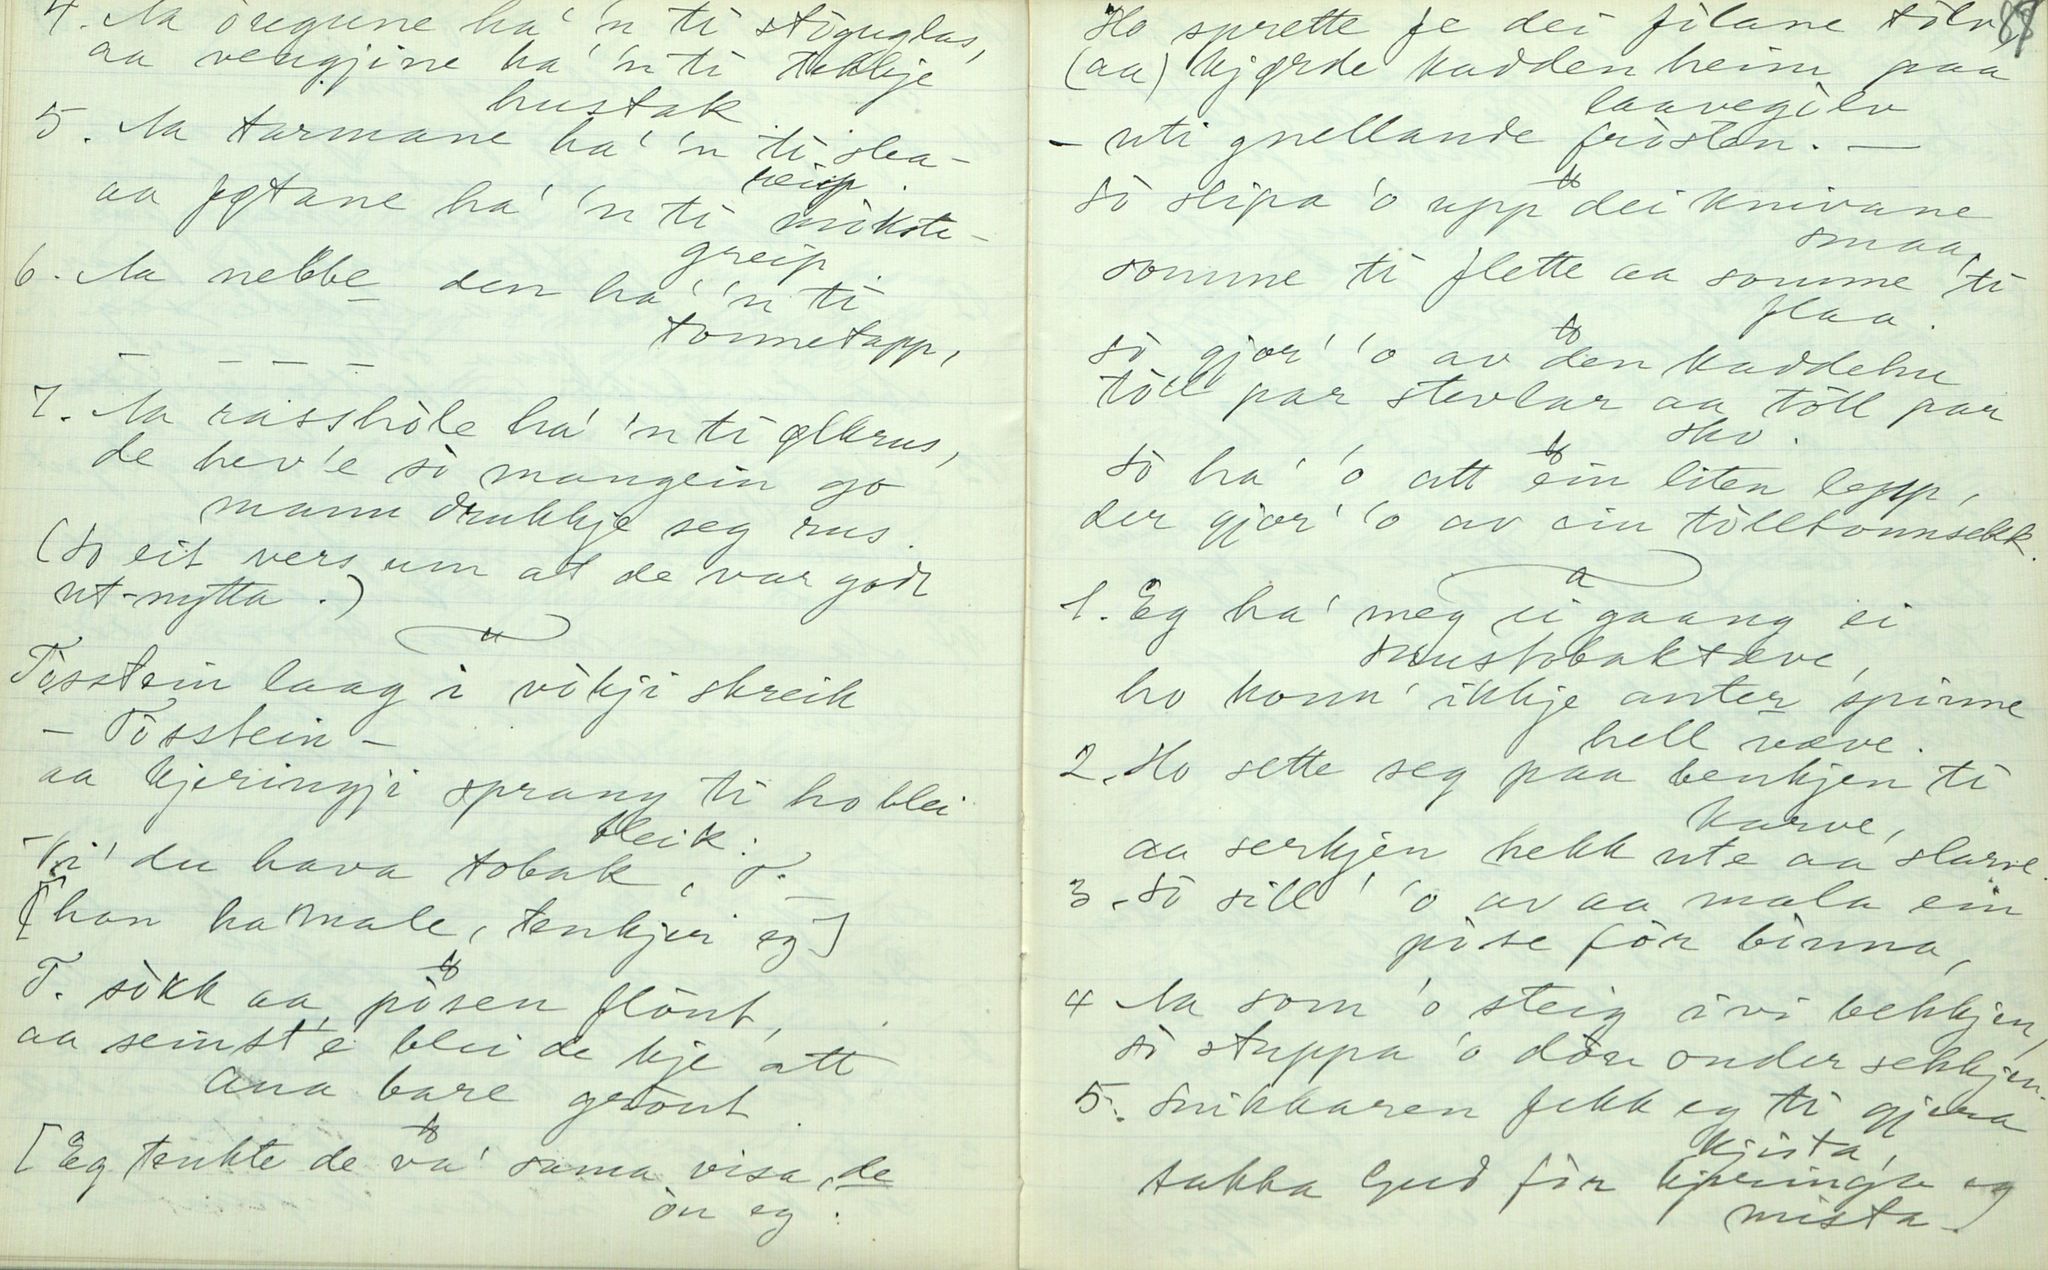 4. Aa òugune ha' 'n ti stòguglas,
aa vengjine ha' 'n ti takkje
hustak.
5. Aa tarmane ha' 'n ti slea-
reip.
aa føtane ha' 'n ti mòkste-
greip.
6. Aa nebbe den ha' 'n ti
tonnetapp,
— — — —
7. Aa rasshòle ha' 'n ti ølkrus,
de hev'e sò mangein go
mann drukkje seg rus.
(So eit vers um at de var godt
ut-nytta.)
Tòsstein laag i vòkji skreik
— Tòsstein —
aa kjeringji sprang ti ho blei
bleik.
Vi' du hava tobak, T. —
[han ha male, tenkjer eg]
T. sòkk aa pòsen flòut,
aa seinst'e blei de kje att
ana bare graut.
[Eg tenkte de va' sama visa, de
òn eg.
88
Ho sprette fe dei filane tòlv,
(aa) kjørde kadden heim paa
laavegòlv
— uti gnellande fròsten. —
Sò slipa 'o upp dei knivane
smaa,
somme ti flette aa somme ti
flaa.
Sò gjor' 'o av den kaddehu
tòll par stevlar aa tòll par
sko.
Sò ha' 'o att ein liten lepp,
der gjor' 'o av ein tòlltonnsekk.
1. Eg ha' meg ei gaang ei
snustobaktæve,
ho konn' ikkje anter spinne
hell væve.
2. Ho sette seg paa benkjen ti
karve,
aa serkjen hekk ute aa slarve.
3. Sò sill' 'o av aa mala ein
pòse fòr binna,
4 Aa som 'o steig ivi bekkjen,
sò stuppa 'o dòu onder sekkjen.
5. Snikkaren fekk eg ti gjera
kjista,
takka Gud fòr kjeringa eg
mista.